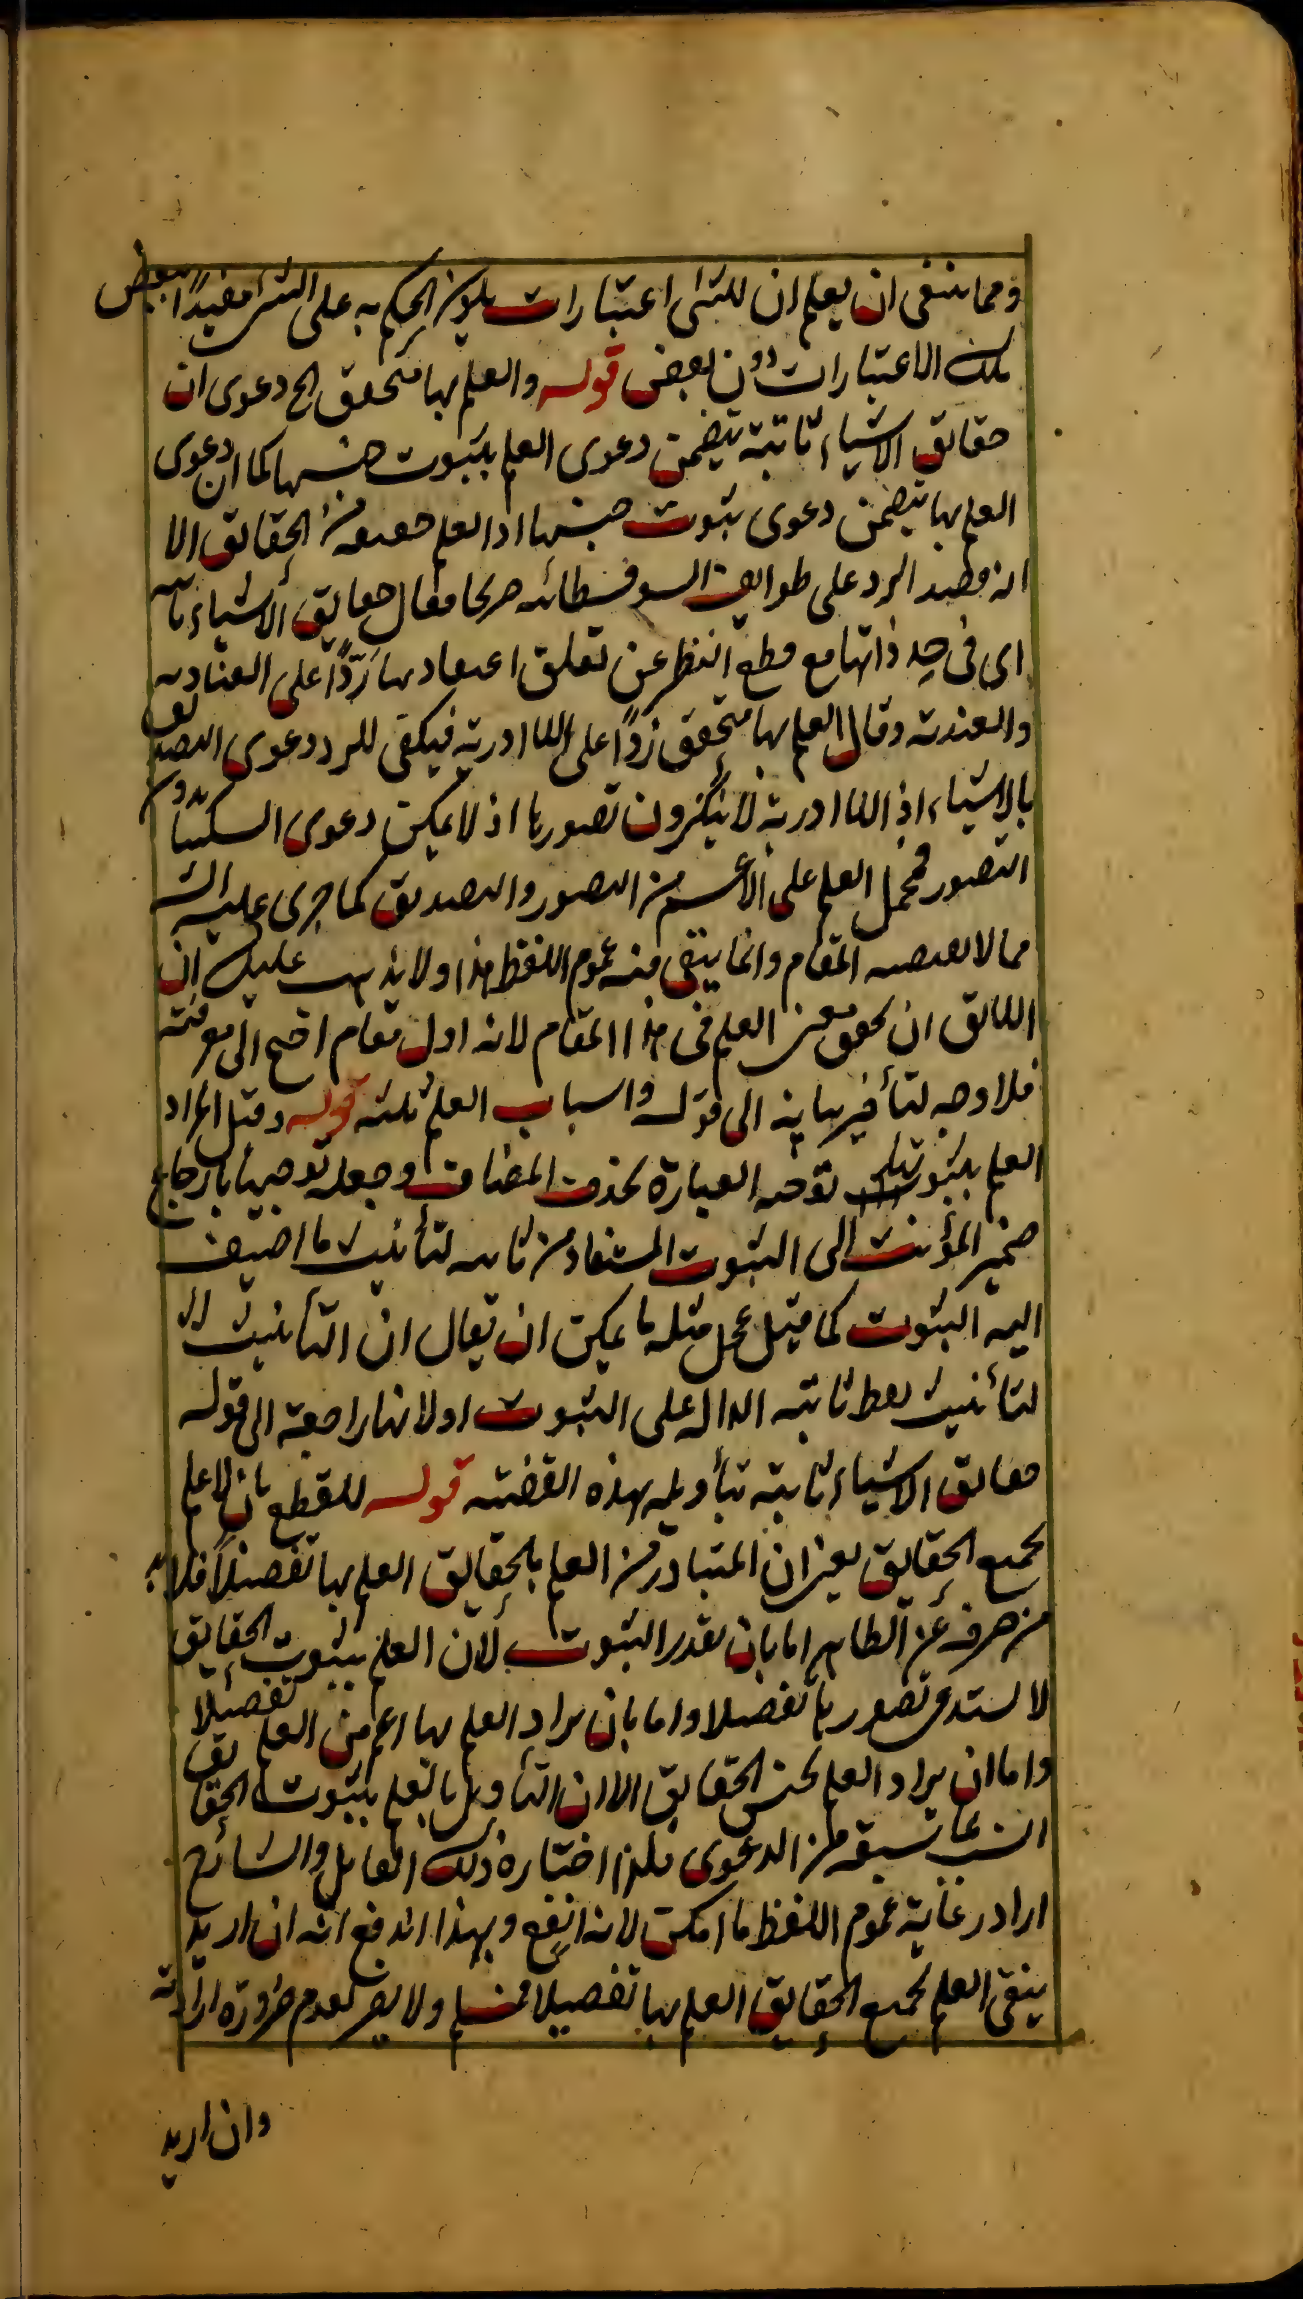 ومما ينبغي ان يعلم ان للشئ اعتبارات يكون الحكم به على الشئ مفيدًا ببعض
تلك الاعتبارات دون بعض قوله والعلم بها متحقق الخ دعوى ان
حقايق الاشياء ثابتة يتضمن دعوى العلم بثبوت جنسها كما ان دعوى
العلم بها يتضمن دعوى ثبوت جنسها اذ العلم حقيقة من الحقايق الا
انه قصد الرد على طوايف السوفسطائيه صريحا فقال حقايق الاشياء ثابته
اى فى حد ذاتها مع قطع النظر عن تعلق اعتقاد بها ردًا على العناديه
والعنديه وقال العلم بها متحقق ردًا على اللاادرية فيكفى للرد دعوى التصديق
بالاشياء اذ اللاادرية لا ينكرون تصورها اذ لا يمكن دعوى الشك بدون
التصور فحمل العلم على الاعم من التصور والتصديق كما جرى عليه الش
مما لا يقتضيه المقام وانما ينبغى فيه عموم اللفظ هذا ولا يذهب عليك ان
اللائق ان يحقق معنى العلم فى هذا المقام لانه اول مقام احتيج الى معرفته
فلا وجه لتأخير بيانه الى قوله واسباب العلم ثلثه قوله وقيل المراد
العلم بثبوتها توجيه العبارة بحذف المضاف وجعله توجيها بارجاع
ضمير المؤنث الى الثبوت المستفاد من ثابته لتأنيث ما اضيف
اليه الثبوت كما قيل تمحل مثله ما يمكن ان يقال ان التأنيث
لتأنيث لفظ ثابته الدال على الثبوت او لانها راجعة الى قوله
حقايق الاشياء ثابتة بتأويله بهذه القضيه قوله للقطع بان لا علم
بجميع الحقايق يعنى ان المتبادر من العلم بالحقايق العلم بها تفصيلاً فلا بد
من صرفه عن الظاهر اما بان يقدر الثبوت لان العلم بثبوت الحقايق
لا يستدعى تصورها تفصيلا واما بان يراد العلم بها اعم من العلم تفصيلا
واما ان يراد العلم بجنس الحقايق الا ان التأويل بالعلم بثبوت الحقايق
انسب بما سبقه من الدعوى فلهذا اختاره ذلك القايل والشارح
اراد رعاية عموم اللفظ ما امكن لانه انفع وبهذا اندفع انه ان اريد
بنفى العلم بجميع الحقايق العلم بها تفصيلا فمسلم ولا يضر لعدم ضرورة ارادته
وان اريد